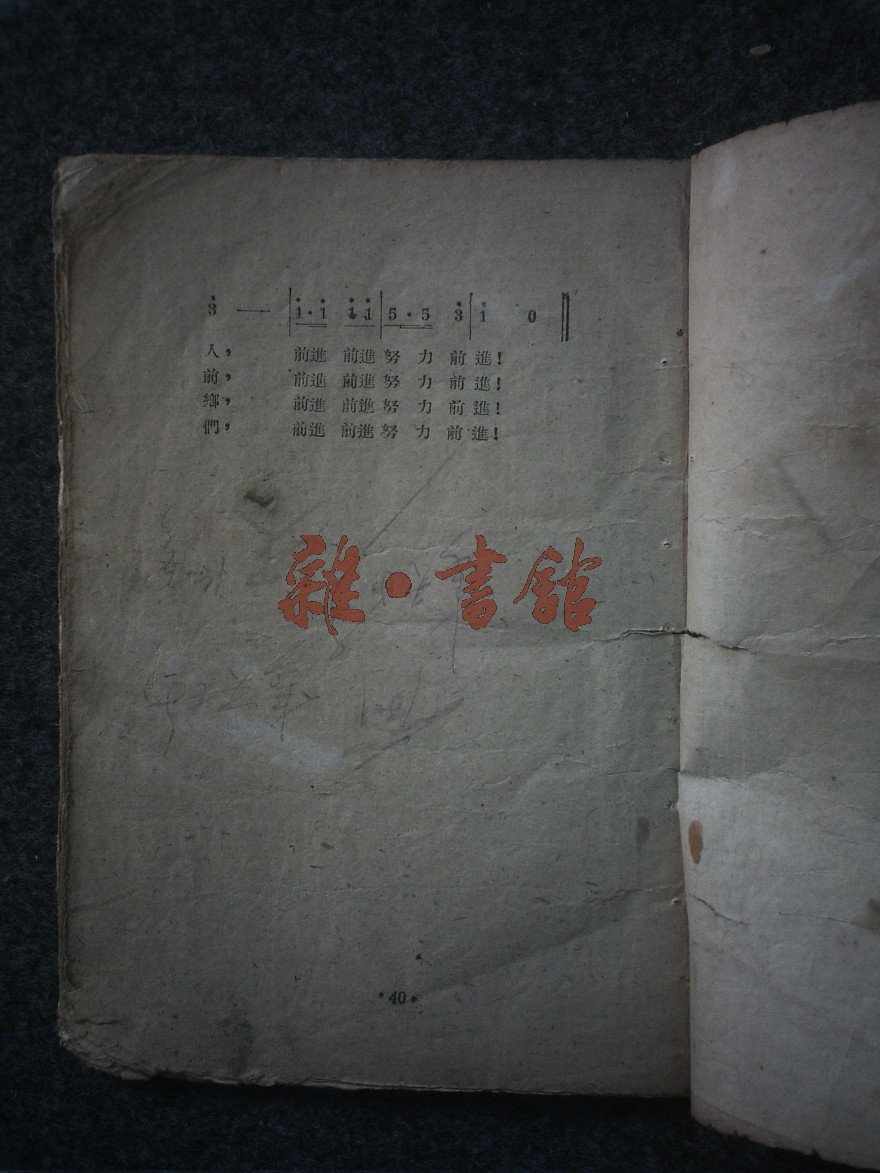 3̇ — | 1̇ · 1̇ 1̇ 1̇ | 5 · 5 3̇ | 1̇ 0 ‖
人， 前進 前進 努 力 前 進！
前， 前進 前進 努 力 前 進！
鄉， 前進 前進 努 力 前 進！
們， 前進 前進 努 力 前 進！
雜·書館
·40·